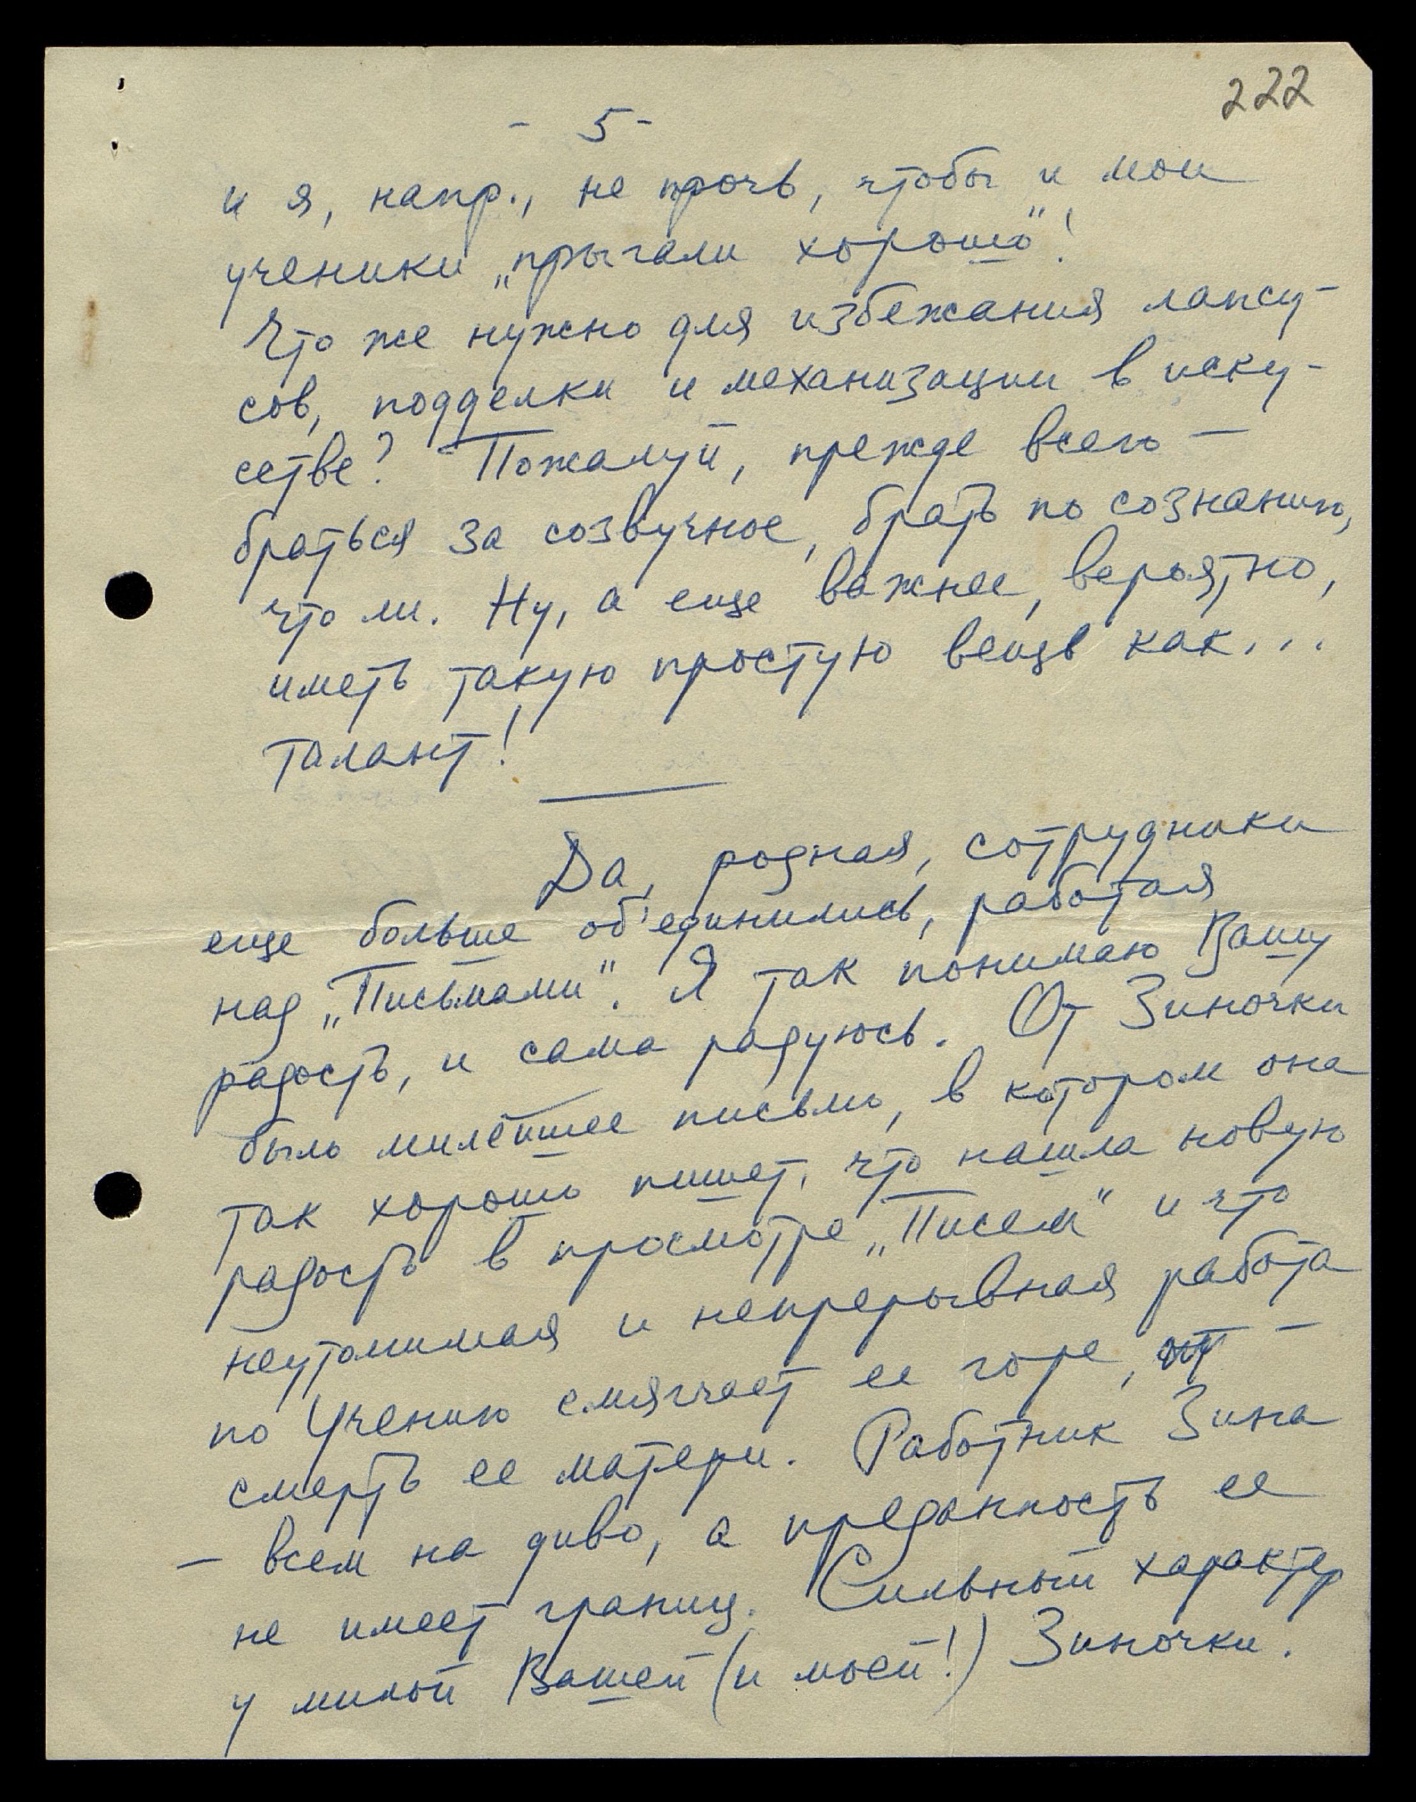 222
- 5 -
и я, напр., не прочь, чтобы и мои
ученики „прыгали хорошо"!
Что же нужно для избежания лапсу-
сов, подделки и механизации в иску-
сстве? Пожалуй, прежде всего —
браться за созвучное, брать по сознанию,
что ли. Ну, а еще важнее, вероятно,
иметь такую простую вещь как...
талант!
Да, родная, сотрудники
еще больше об'единились, работая
над „Письмами". Я так понимаю Вашу
радость, и сама радуюсь. От Зиночки
было милейшее письмо, в котором она
так хорошо пишет, что нашла новую
радость в просмотре „Писем" и что
неутомимая и непрерывная работа
по Учению смягчает ее горе, —
смерть ее матери. Работник Зина
— всем на диво, а преданность ее
не имеет границ. Сильный характер
у милой Вашей (и моей!) Зиночки.